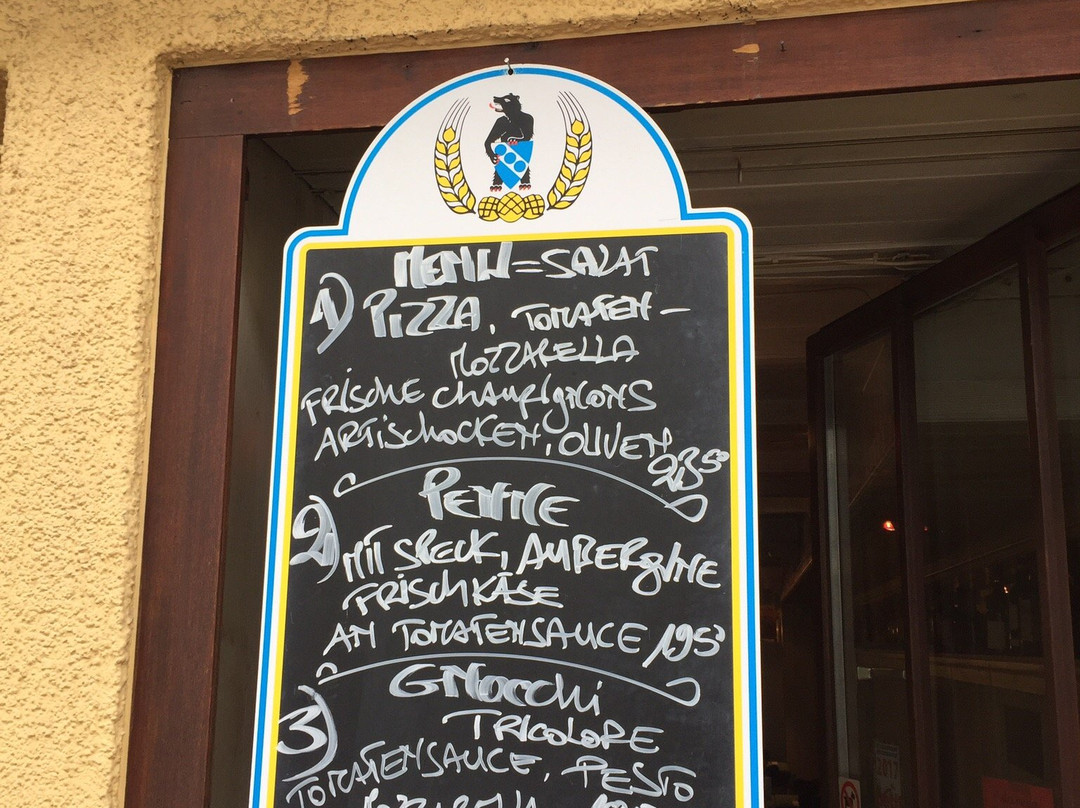 MENU = SALAT
1) PIZZA, TOMATEN-
MOZZARELLA
FRISCHE CHAMPIGNONS
ARTISCHOCKEN, OLIVEN 23.50
PENNE
2) MIT SPECK, AUBERGINE
FRISCHKÄSE
AN TOMATENSAUCE 19.50
GNOCCHI
3) TRICOLORE
TOMATENSAUCE, PESTO
MOZZARELLA